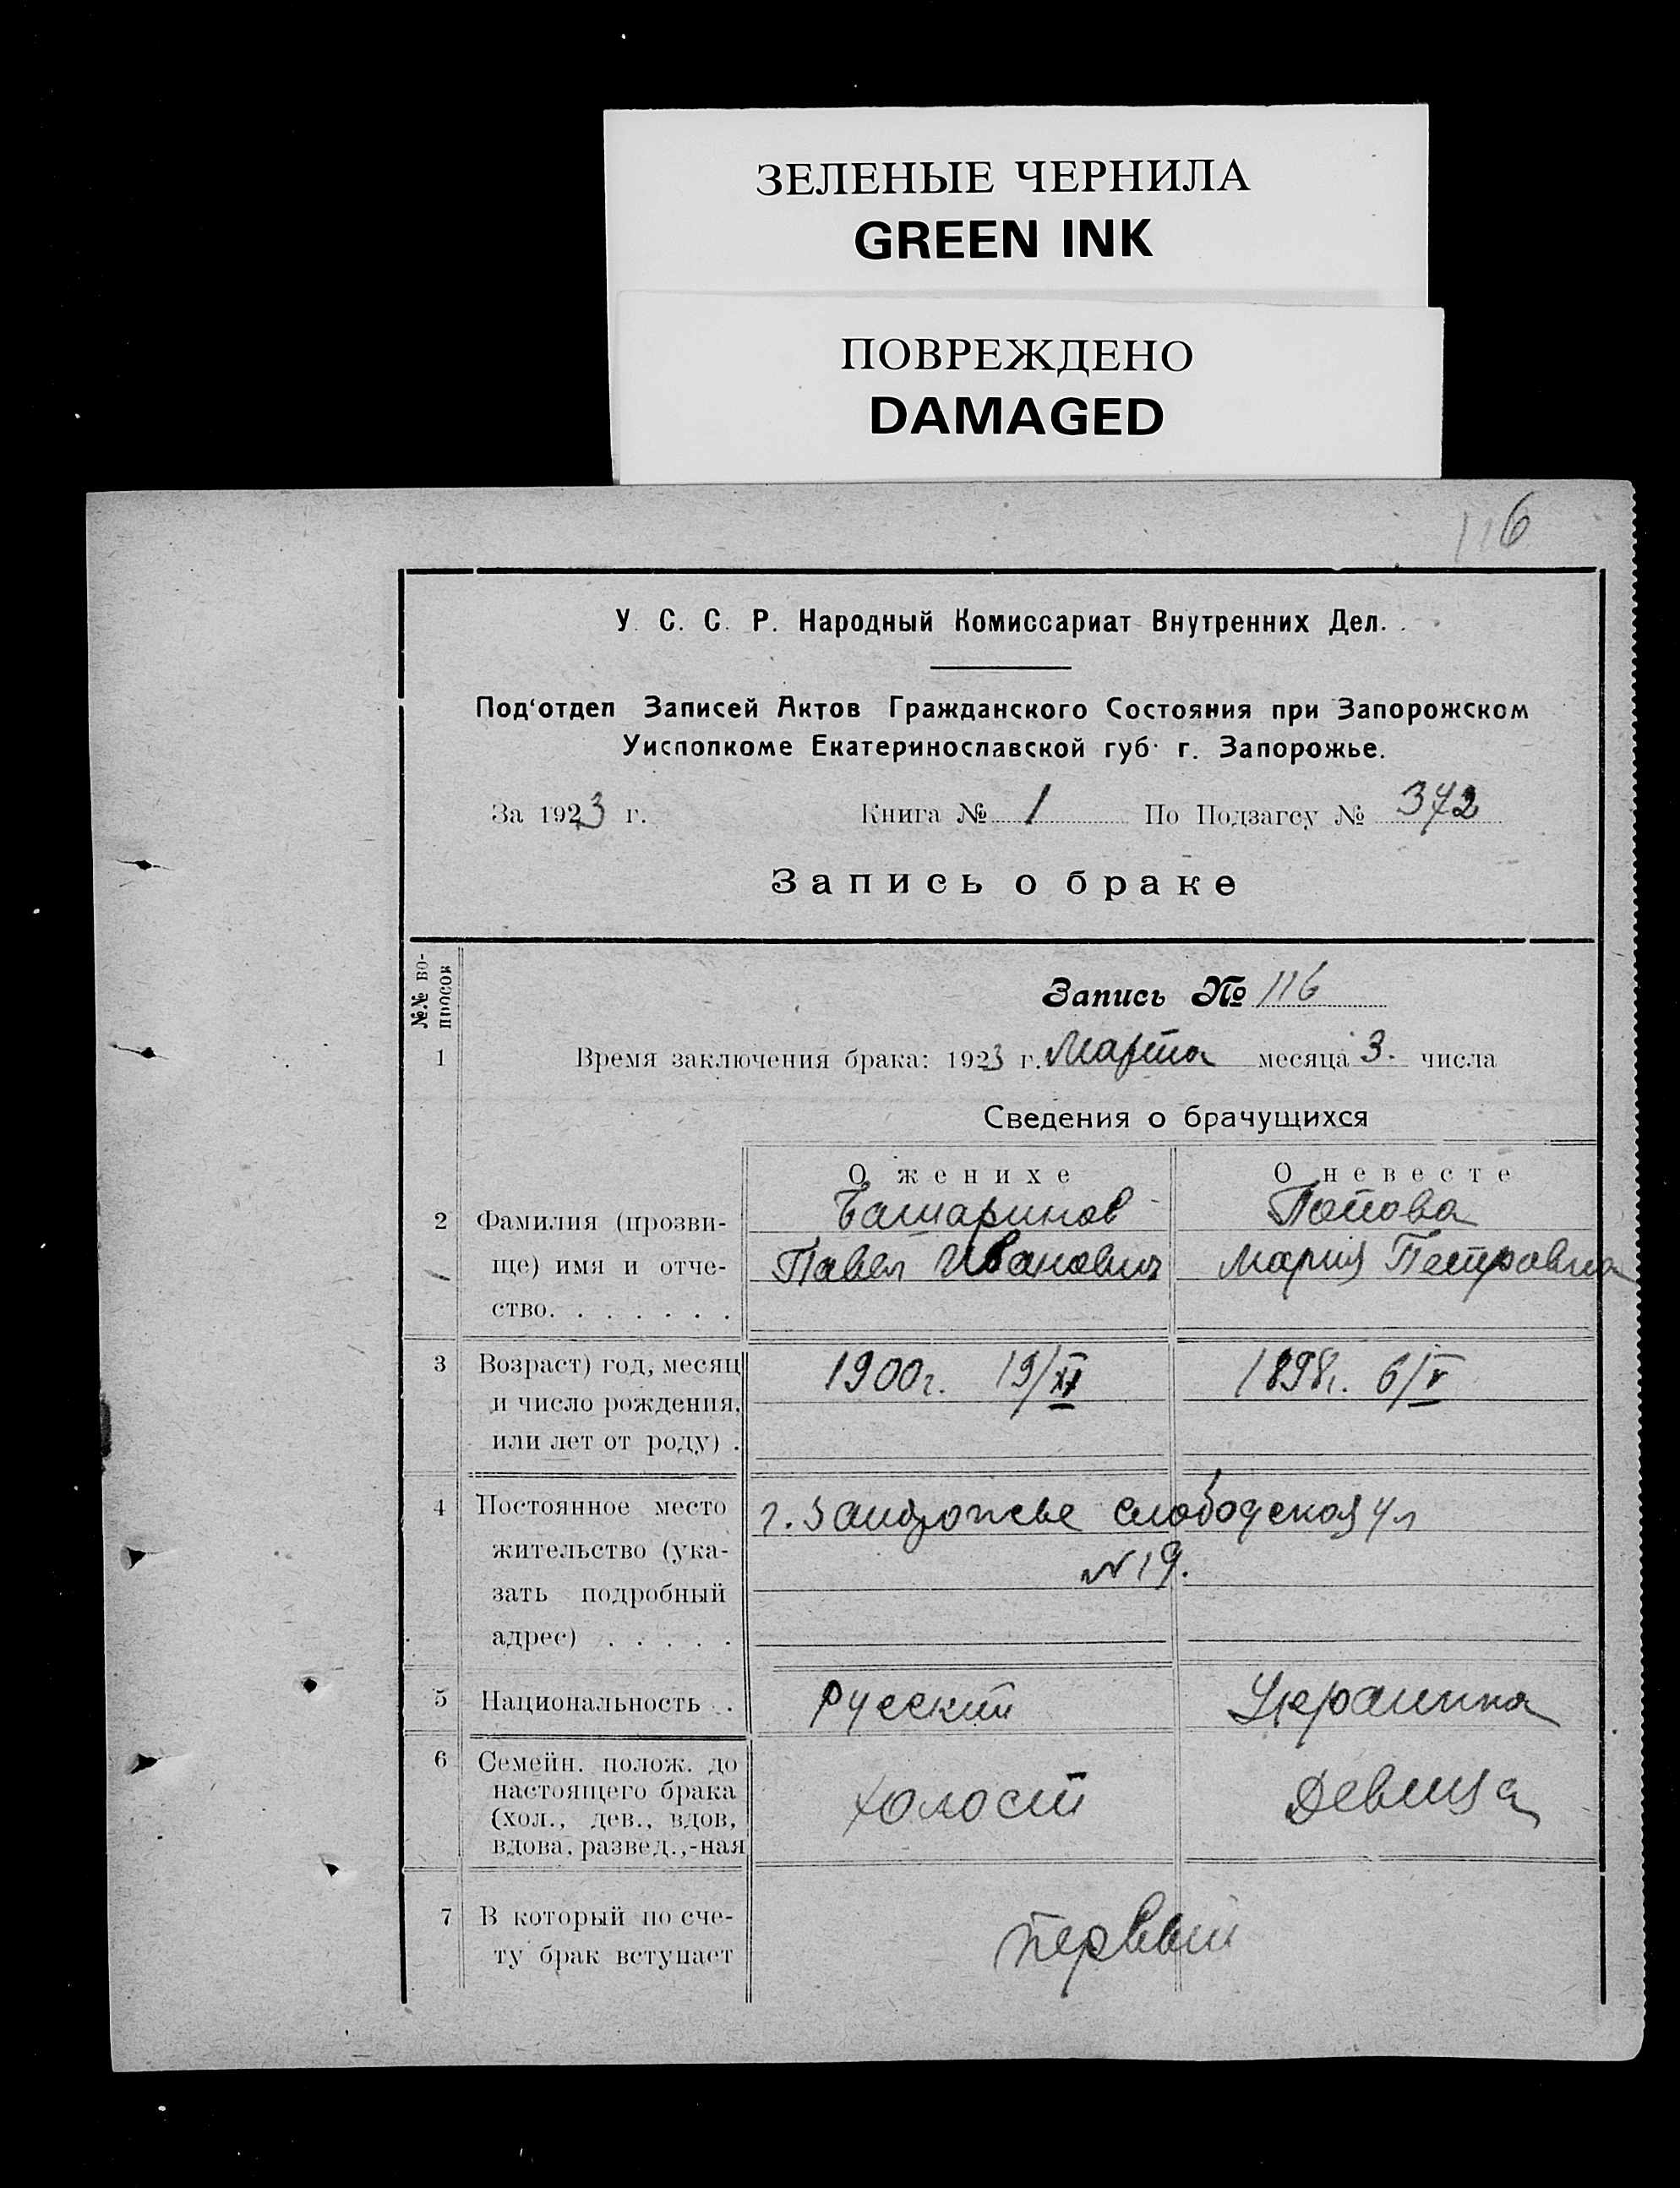 ЗЕЛЕНЫЕ ЧЕРНИЛА
GREEN INK
ПОВРЕЖДЕНО
DAMAGED
116
У. С. С. Р. Народный Комиссариат Внутренних Дел.
Под'отдел Записей Актов Гражданского Состояния при Запорожском
Уисполкоме Екатеринославской губ. г. Запорожье.
За 1923 г. Книга № 1 По Подзагсу № 372
Запись о браке
№№ во-
просов
Запись № 116
1 Время заключения брака: 1923 г. Марта месяца 3. числа
Сведения о брачущихся
О женихе О невесте
2 Фамилия (прозви- Башаринов Попова
ще) имя и отче- Павел Иванович Мария Петровна
ство. . . . . . .
3 Возраст) год, месяц 1900г. 19/XI 1898г. 6/V
и число рождения,
или лет от роду) .
4 Постоянное место г. Запорожье Слободская ул
жительство (ука- № 19.
зать подробный
адрес) . . . . .
5 Национальность . . Русский Украинка
6 Семейн. полож. до
настоящего брака Холост Девица
(хол., дев., вдов,
вдова, развед.,-ная
7 В который по сче- Первый
ту брак вступает